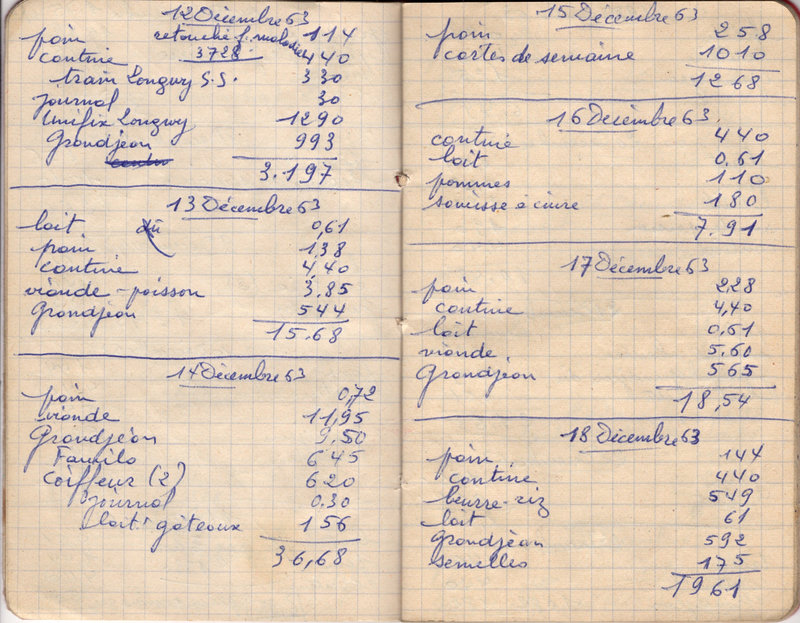 12 Décembre 63
pain 114
retouche f. malade
cantine 3728 440
train Longwy S.S. 330
journal 30
Unifix Longwy 1290
Grandjean 993
3.197
13 Décembre 63
lait dû 0,61
pain 1,38
cantine 4,40
viande - poisson 3,85
Grandjean 544
15.68
14 Décembre 63
pain 0,72
viande 11,95
Grandjean 9,50
Familo 645
Coiffeur (2) 620
journal 0.30
lait gâteaux 156
36,68
15 Décembre 63
pain 258
cartes de semaine 1010
1268
16 Décembre 63
cantine 440
lait 0.61
pommes 110
saucisse à cuire 180
7.91
17 Décembre 63
pain 2,28
cantine 4,40
lait 0,61
viande 5.60
Grandjean 565
18,54
18 Décembre 63
pain 144
cantine 440
beurre-riz 549
lait 61
Grandjean 592
semelles 175
1961